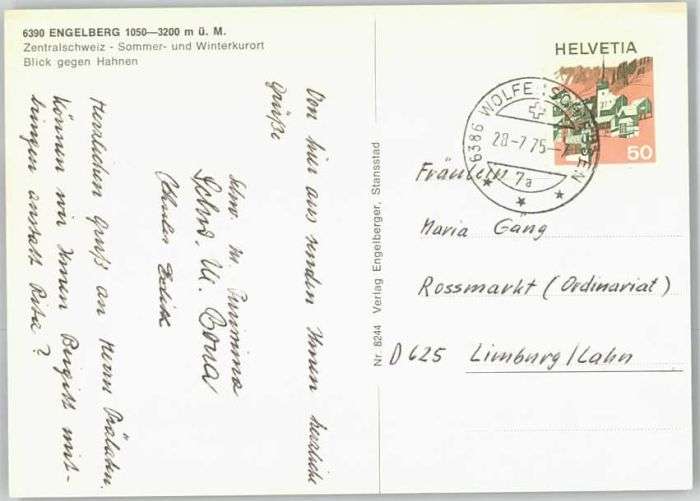 6390 ENGELBERG 1050—3200 m ü. M.
Zentralschweiz - Sommer- und Winterkurort
Blick gegen Hahnen
Von hier aus senden Ihnen herzliche
Grüße
Schw. M.
Schw. M. Bona
Herzlichen Gruß an Herrn Prälaten.
Können wir Ihnen Birgitt mit-
bringen anstatt Rita?
Nr. 8244 Verlag Engelberger, Stansstad
HELVETIA
50
6386 WOLFENSCHIESSEN
28-7.75-
7a
Fräulein
Maria Gäng
Rossmarkt (Ordinariat)
D 625 Limburg/Lahn